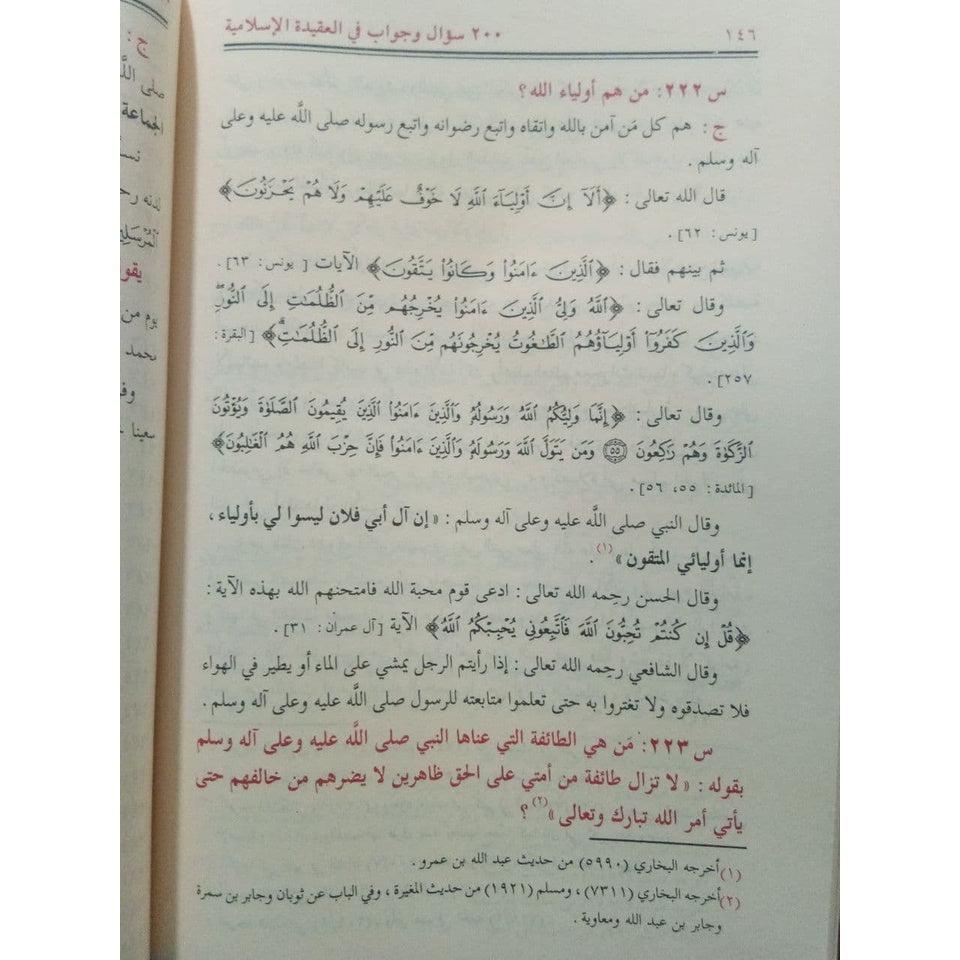 ١٤٦
٢٠٠ سؤال وجواب في العقيدة الإسلامية
س ٢٢٢: من هم أولياء الله؟
ج : هم كل مَن آمن بالله واتقاه واتبع رضوانه واتبع رسوله صلى اللَّه عليه وعلى
آله وسلم .
قال الله تعالى : ﴿أَلَآ إِنَّ أَوْلِيَآءَ ٱللَّهِ لَا خَوْفٌ عَلَيْهِمْ وَلَا هُمْ يَحْزَنُونَ﴾
[يونس: ٦٢] .
ثم بينهم فقال : ﴿ٱلَّذِينَ ءَامَنُوا۟ وَكَانُوا۟ يَتَّقُونَ﴾ الآيات [يونس: ٦٣] .
وقال تعالى : ﴿ٱللَّهُ وَلِىُّ ٱلَّذِينَ ءَامَنُوا۟ يُخْرِجُهُم مِّنَ ٱلظُّلُمَٰتِ إِلَى ٱلنُّورِۖ
وَٱلَّذِينَ كَفَرُوٓا۟ أَوْلِيَآؤُهُمُ ٱلطَّٰغُوتُ يُخْرِجُونَهُم مِّنَ ٱلنُّورِ إِلَى ٱلظُّلُمَٰتِۗ﴾ [البقرة:
٢٥٧] .
وقال تعالى : ﴿إِنَّمَا وَلِيُّكُمُ ٱللَّهُ وَرَسُولُهُۥ وَٱلَّذِينَ ءَامَنُوا۟ ٱلَّذِينَ يُقِيمُونَ ٱلصَّلَوٰةَ وَيُؤْتُونَ
ٱلزَّكَوٰةَ وَهُمْ رَٰكِعُونَ ۝٥٥ وَمَن يَتَوَلَّ ٱللَّهَ وَرَسُولَهُۥ وَٱلَّذِينَ ءَامَنُوا۟ فَإِنَّ حِزْبَ ٱللَّهِ هُمُ ٱلْغَٰلِبُونَ﴾
[المائدة: ٥٥، ٥٦] .
وقال النبي صلى اللَّه عليه وعلى آله وسلم : «إن آل أبي فلان ليسوا لي بأولياء ،
إنما أوليائي المتقون»(١) .
وقال الحسن رحمه الله تعالى : ادعى قوم محبة الله فامتحنهم الله بهذه الآية :
﴿قُلْ إِن كُنتُمْ تُحِبُّونَ ٱللَّهَ فَٱتَّبِعُونِى يُحْبِبْكُمُ ٱللَّهُ﴾ الآية [آل عمران: ٣١] .
وقال الشافعي رحمه الله تعالى : إذا رأيتم الرجل يمشي على الماء أو يطير في الهواء
فلا تصدقوه ولا تغتروا به حتى تعلموا متابعته للرسول صلى اللَّه عليه وعلى آله وسلم .
س ٢٢٣: مَن هي الطائفة التي عناها النبي صلى اللَّه عليه وعلى آله وسلم
بقوله : «لا تزال طائفة من أمتي على الحق ظاهرين لا يضرهم من خالفهم حتى
يأتي أمر الله تبارك وتعالى»(٢) ؟
(١) أخرجه البخاري (٥٩٩٠) من حديث عبد الله بن عمرو .
(٢) أخرجه البخاري (٧٣١١) ، ومسلم (١٩٢١) من حديث المغيرة ، وفي الباب عن ثوبان وجابر بن سمرة
وجابر بن عبد الله ومعاوية .
ج :
الجماعة
يوم من
محمد